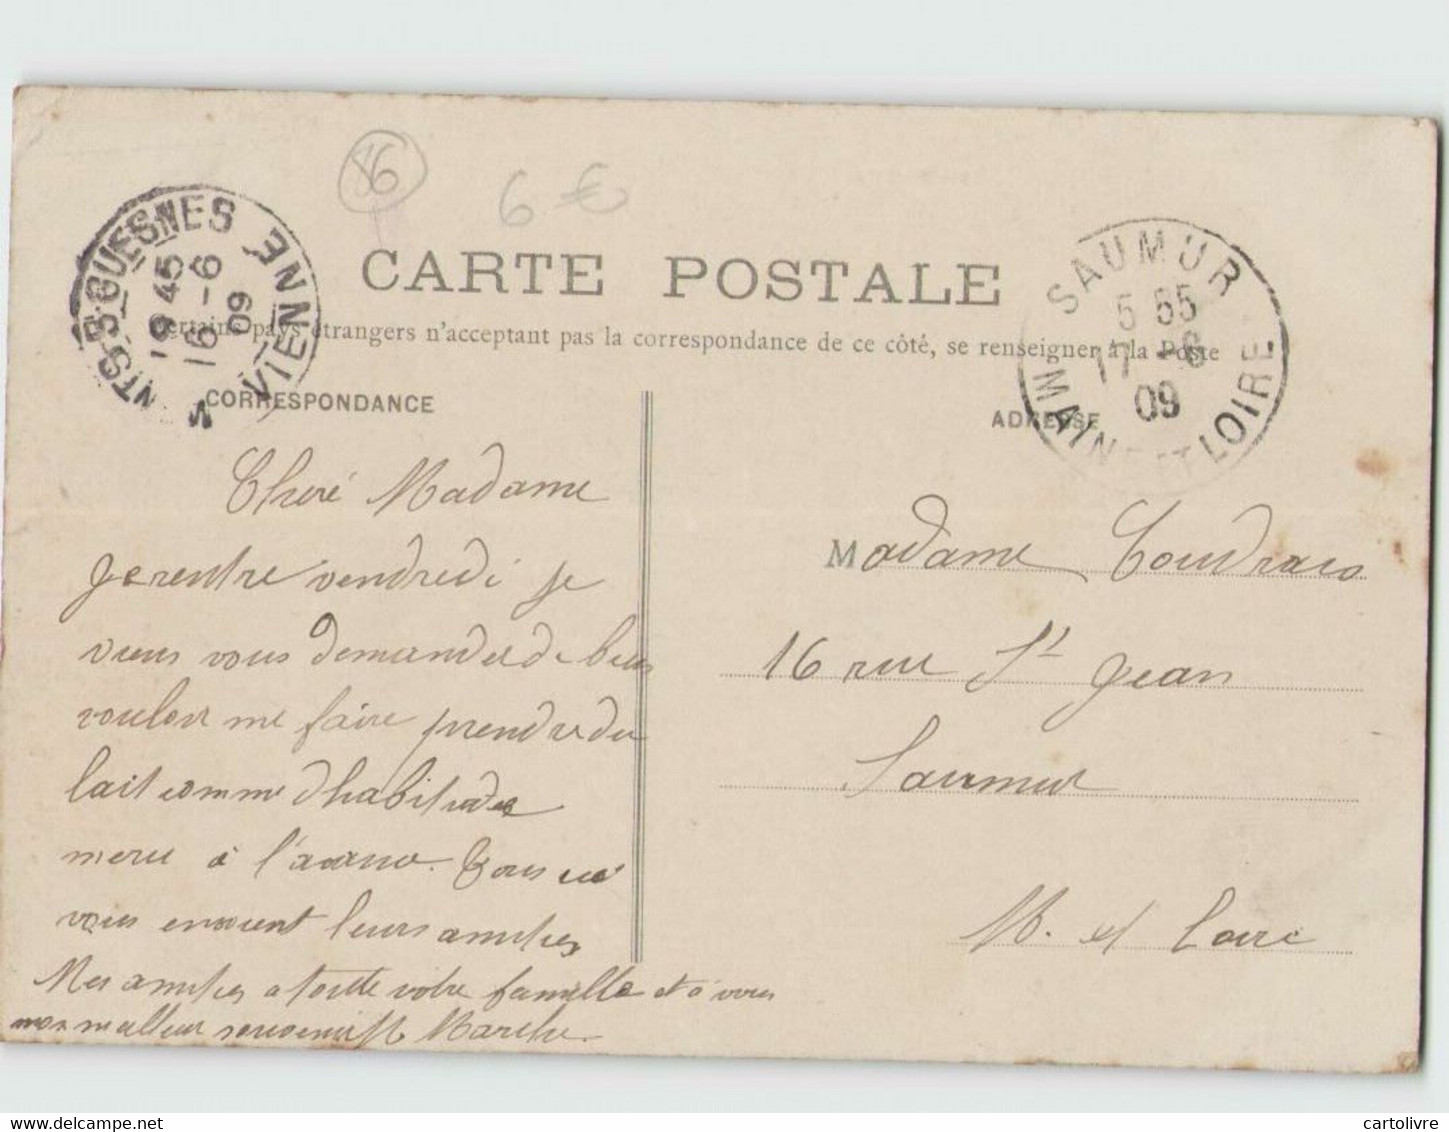 86
6 €
MONTS-S-GUESNES
VIENNE
19 45
16 -6
09
SAUMUR
MAINE ET LOIRE
5 55
17 -6
09
CARTE POSTALE
Certains pays étrangers n'acceptent pas la correspondance de ce côté, se renseigner à la Poste
CORRESPONDANCE
Cheré Madame
Je rentre vendredi je
viens vous demander de bien
vouloir me faire prendre du
lait comme d habitude
merci à l'avance. Tous
vous envoient leurs amitiés
Mes amitiés a toutte votre famille et à vous
mon meilleur souvenir
ADRESSE
Madame Coudrais
16 rue St Jean
Saumur
M. et Loire
cartolivre